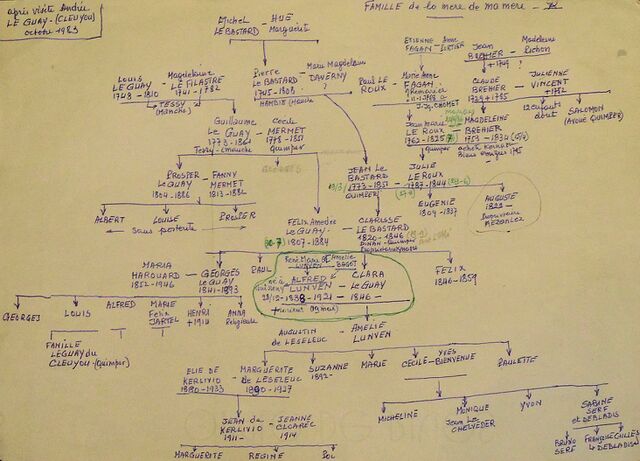 après visite Andrée
LE GUAY - (CLEUYOU)
octobre 1983
FAMILLE de la mere de ma mere -
Michel HUE
LE BASTARD - Marguerit
ETIENNE Anne
FAGAN -
Jean
BREHIER
+1749 ?
Madeleine
Richon
Louis
LE GUAY -
1743 - 1810
Magdeleine
LE FILASTRE
1741 - 1782
TESSY
(Manche)
Pierre
LE BASTARD -
1745 - 1808
Marie Magdeleine
DAVERNY
?
HAMBIE (Manche)
Paul LE
ROUX
Marie Anne
FAGAN
CLAUDE
BREHIER
1729 + 1785
JULIENNE
VINCENT
+1782
12 enfants
dont
SALOMON
(AVOUÉ QUIMPER)
Guillaume
LE GUAY -
1773 - 1861
Tessy - manche
Cecile
MERMET
1778 - 1851
GEORGES
Jean Marie
LE ROUX -
1762 - 1825
Quimper
MAGDELEINE
BREHIER
1753 - 1834
PROSPER
Le GUAY -
1804 - 1886
FANNY
MERMET
1813 - 1882
JEAN LE
BASTARD -
1773 - 1851
QUIMPER
JULIE
LE ROUX
1787 - 1844
ALBERT
LOUISE
PROSPER
sans postérité
EUGENIE
1809 - 1837
AUGUSTE
1823 -
MERGALEZ
FELIX Amedée
Le GUAY -
1807 - 1884
CLARISSE
LE BASTARD
1820 - 1846
DINAN - Quimper
MARIA
MAROUARD -
1852 - 1946
GEORGES
Le GUAY
1841 - 1893
PAUL
René Marie
LUNVEN
Amelie
BAGET
ALFRED
LUNVEN -
1838 - 1921
CLARA
Le GUAY
1846 -
FELIX
1846 - 1859
GEORGES
LOUIS
ALFRED
MARIE
Felix
JARTEL
HENRI
+1914
ANNA
Religieuse
FAMILLE
LEGUAY du
CLEUYOU - (Quimper)
AUGUSTIN
de LESELEUC -
AMELIE
LUNVEN
ELIE DE
KERLIVIO -
1880 - 1933
MARGUERITE
de LÉSELEUC
1890 - 1927
SUZANNE
1892 -
MARIE
YVES
CECILE - BIENVENUE
PAULETTE
JEAN de
KERLIVIO -
1911 -
JEANNE
CLOAREC
1914
MICHELINE
MONIQUE
Jean Le
CHELVEDER
YVON
SABINE
SERF
et DEBLADIS
BRUNO
SERF
FRANÇOISE GILLES
DEBLADIS
MARGUERITE
REGINE
SOL